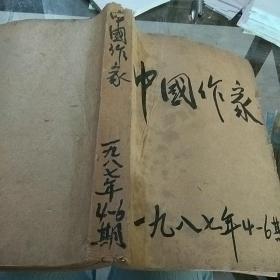 中國作家
一九八七年
4-6
期
中國作家
一九八七年4-6期